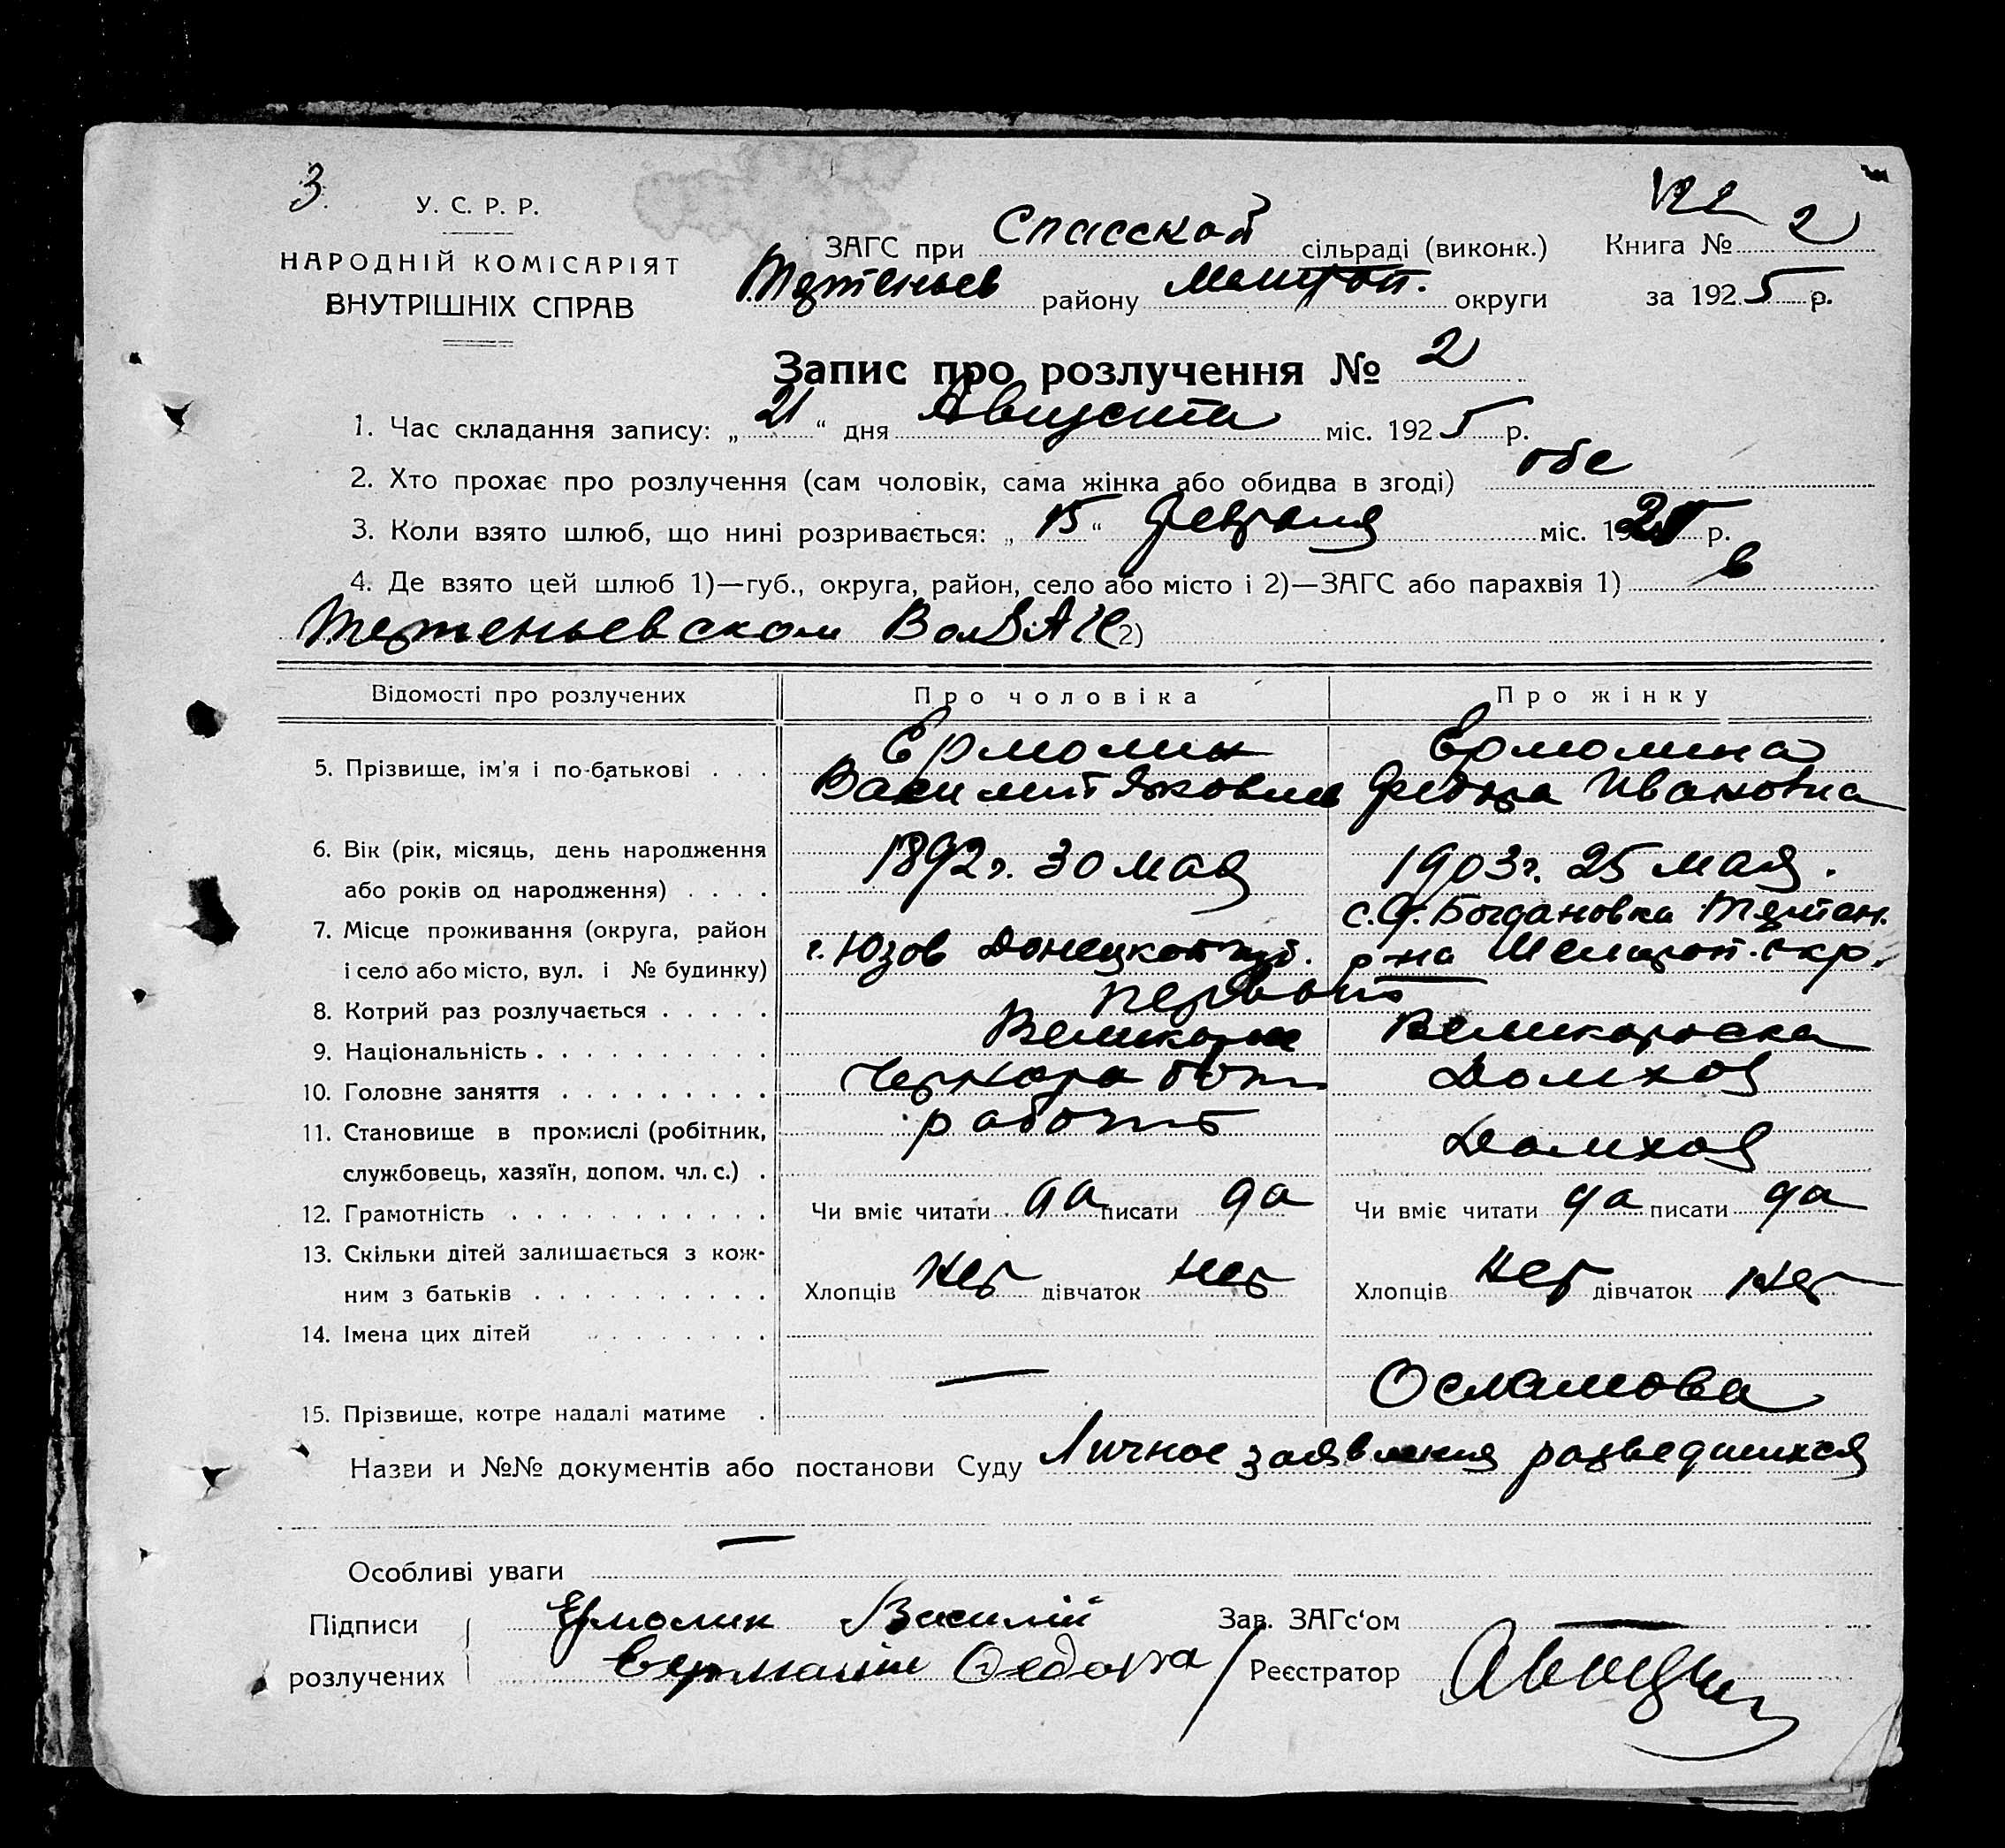 3.
У. С. Р. Р.
НАРОДНІЙ КОМІСАРІЯТ
ВНУТРІШНІХ СПРАВ
ЗАГС при Спасской сільраді (виконк.)
Книга № 2
району Мелитоп. округи
за 1925 р.
Запис про розлучення № 2
1. Час складання запису: „21“ дня Августа міс. 1925 р.
2. Хто прохає про розлучення (сам чоловік, сама жінка або обидва в згоді) обе
3. Коли взято шлюб, що нині розривається: „15“ февраля міс. 192 р.
4. Де взято цей шлюб 1)—губ., округа, район, село або місто і 2)—ЗАГС або парахвія 1) в
2)
Відомості про розлучених Про чоловіка Про жінку
5. Прізвище, ім'я і по-батькові . . . Ермолин Ермолина
Василий Яковлев Федора Ивановна
6. Вік (рік, місяць, день народження
або років од народження) . . . . 1892 г. 30 мая 1903 г. 25 мая.
7. Місце проживання (округа, район
і село або місто, вул. і № будинку) г. Юзов Донецкой губ. с. Богдановка
р-на Мелитоп. окр.
8. Котрий раз розлучається . . . . . первый
9. Національність . . . . . . . . . . . Великорос Великороска
10. Головне заняття . . . . . . . . . Чернорабоч Домхоз
11. Становище в промислі (робітник,
службовець, хазяїн, допом. чл. с.) . Домхоз
12. Грамотність . . . . . . . . . . . Чи вміє читати да писати да Чи вміє читати да писати да
13. Скільки дітей залишається з кож-
ним з батьків . . . . . . . . . . Хлопців нет дівчаток нет Хлопців нет дівчаток нет
14. Імена цих дітей . . . . . . . .
15. Прізвище, котре надалі матиме . — Осламова
Назви и №№ документів або постанови Суду Личное заявления разведшихся
—
Особливі уваги
Підписи Ермолин Василій Зав. ЗАГс‘ом —
розлучених Федора Реєстратор